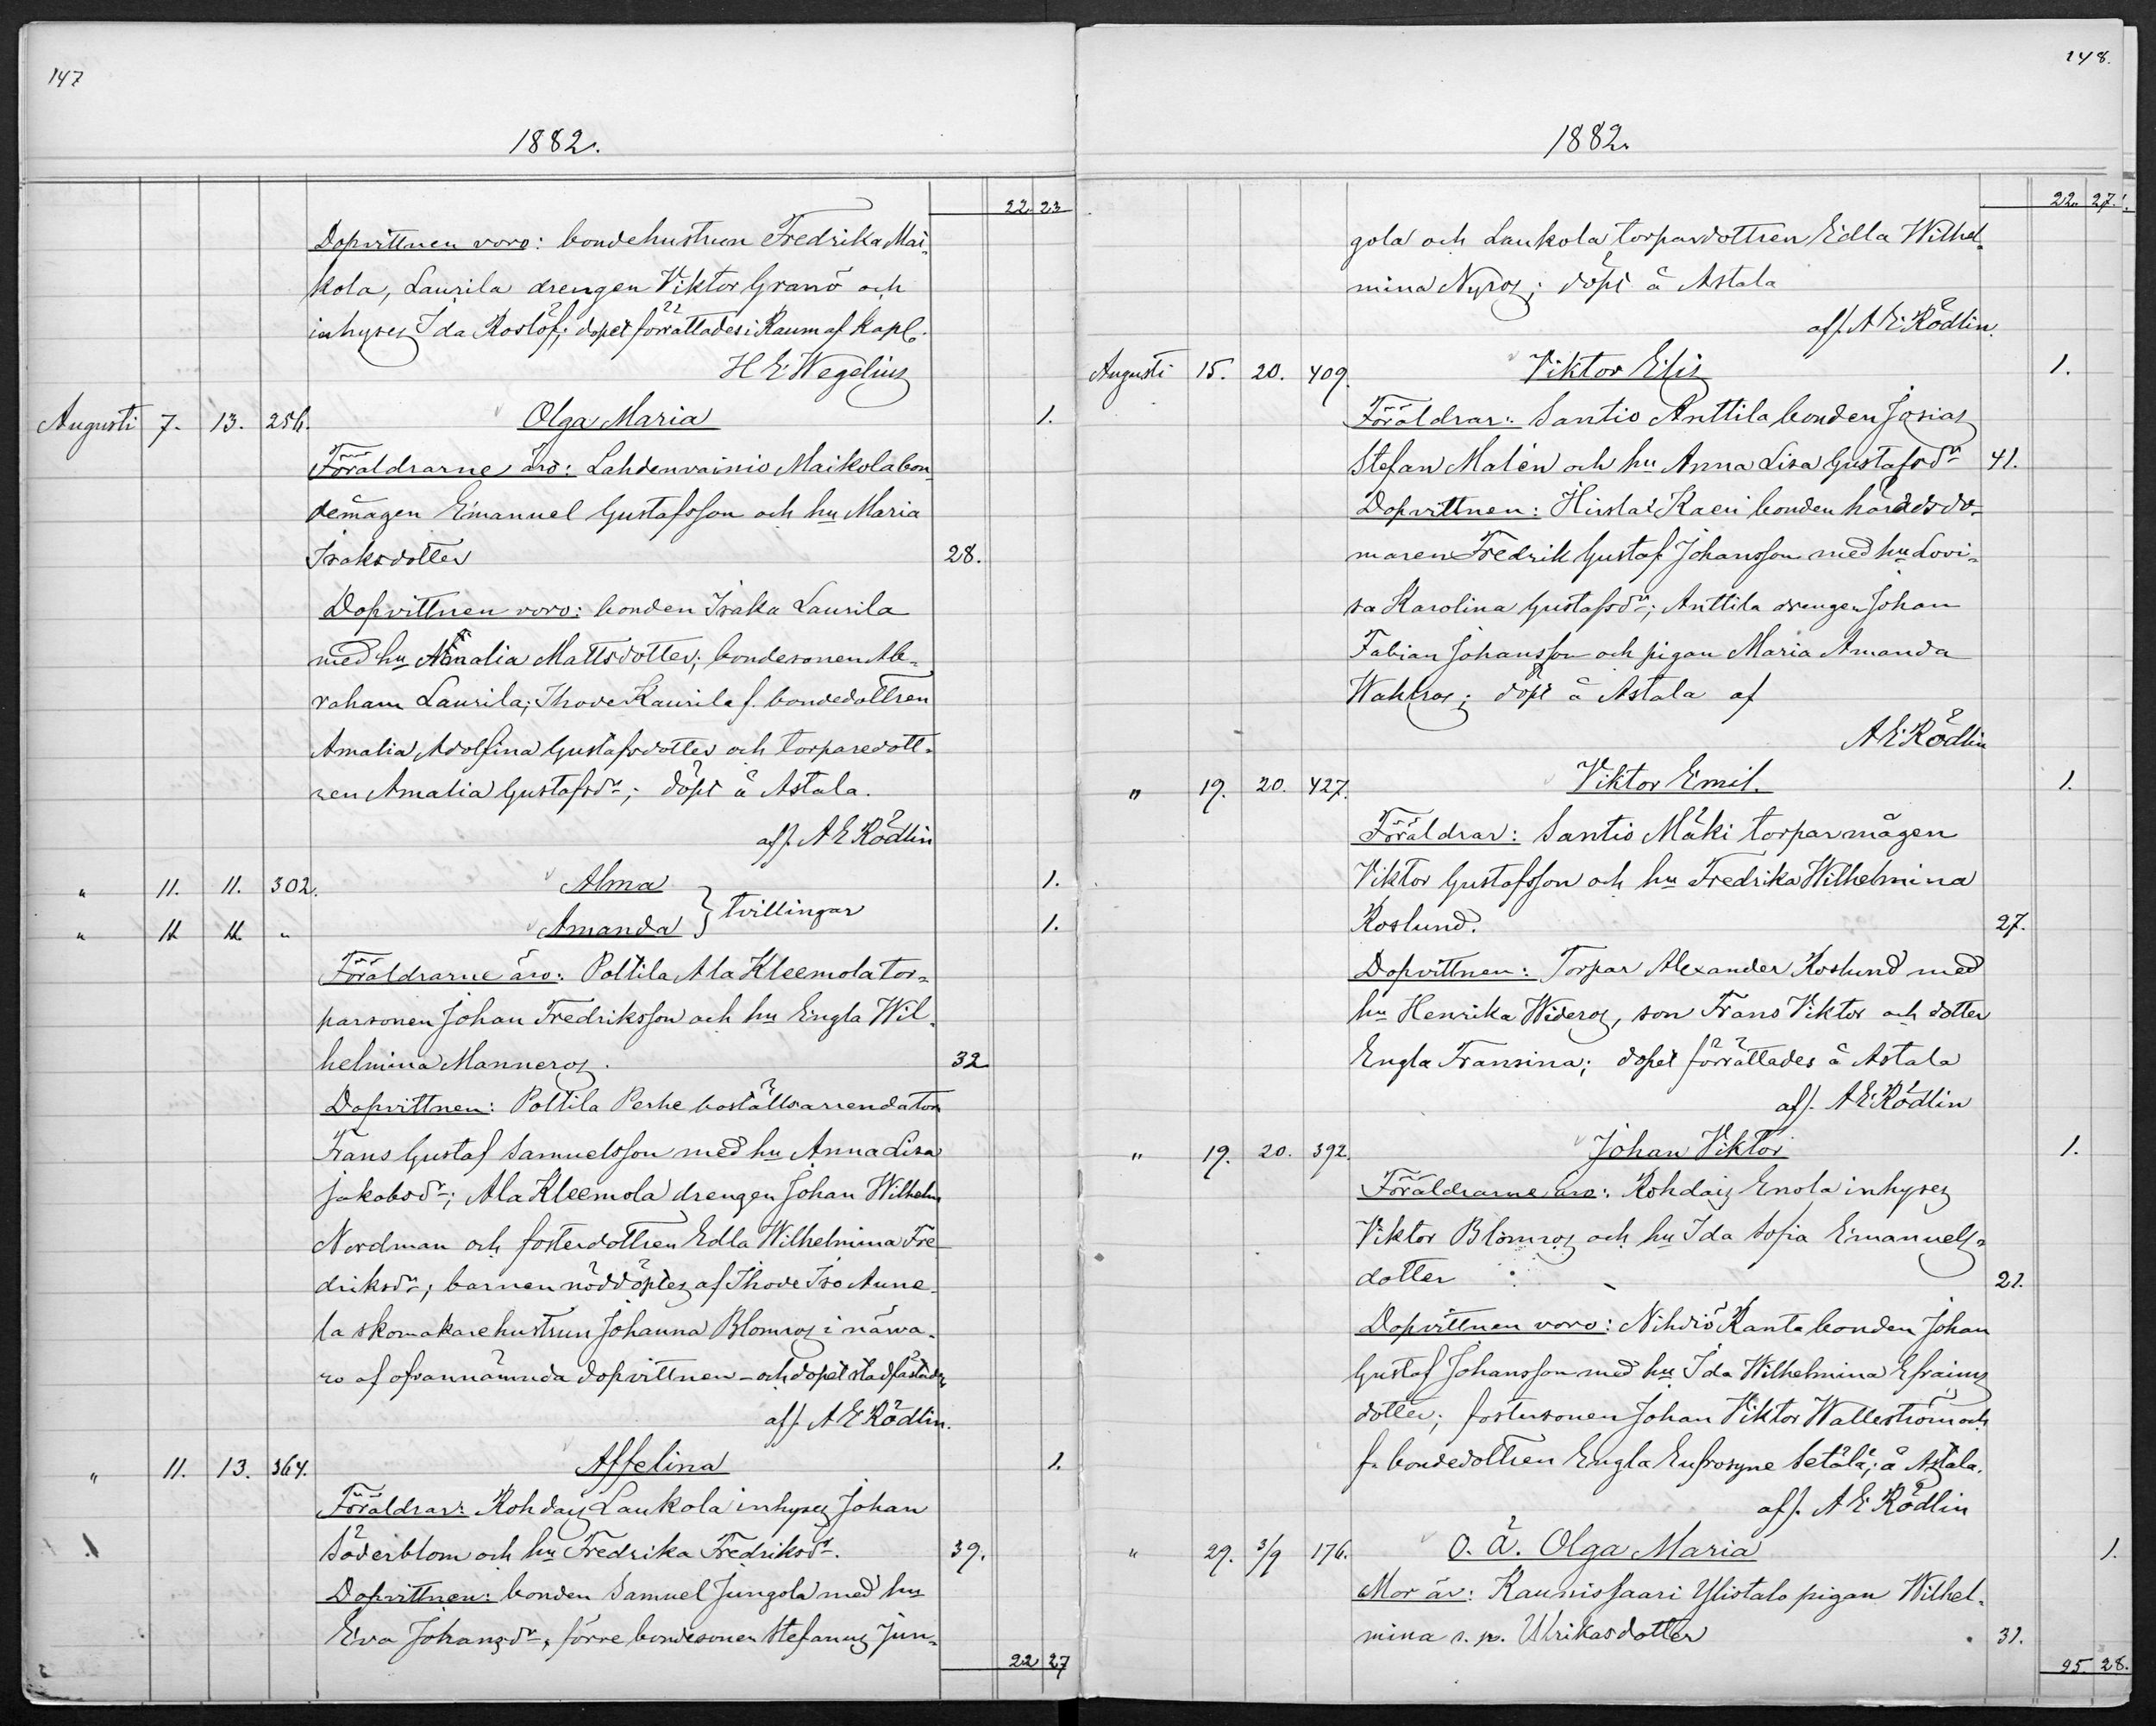 147
1882.
22. 23
Dopvittnen voro: bondehustrun Fredrika Mai-
kola, Laurila drengen Viktor Granö och
inhyses Ida Roslöf; dopet förrättades i Raum af Kapl.
H E Wegelius
Augusti 7. 13. 256. Olga Maria 1.
Föräldrarne äro: Lahdenvainio Maikola bon-
demågen Emanuel Gustafsson och hu Maria
Isaksdotter 28.
Dopvittnen voro: bonden Isaka Laurila
med hu Amalia Mattsdotter; bondesonen Ab-
raham Laurila; Ihode Kaurila f. bondedottren
Amalia Adolfina Gustafsdotter och torparedott-
ren Amalia Gustafsdr; döpt å Astala.
af/. A E Rödlin
" 11. 11. 302. Alma } tvillingar 1.
" 11 11. " Amanda 1.
Föräldrarne äro: Polttila Ala Kleemola tor-
parsonen Johan Fredriksson och hu Engla Wil-
helmina Manneros. 32
Dopvittnen: Polttila Perhe boställsarrendatorn
Frans Gustaf Samuelsson med hu Anna Lisa
Jakobsdr; Ala Kleemola drengen Johan Wilhelm
Nordman och fosterdottren Edla Wilhelmina Fre-
driksdr; barnen nöddöptes af Ihode Iso Aune-
la skomakarehustrun Johanna Blomros i närva-
ro af ofvannämnda dopvittnen - och dopet stadfästades
af/. A E Rödlin.
" 11. 13. 364. Affelina 1.
Föräldrar: Rohdais Laukola inhyses Johan
Söderblom och hu Fredrika Fredriksdr. 39.
Dopvittnen: bonden Samuel Jungola med hu
Eva Johansdr, förre bondesonen Stefanus Jun-
22 27
148.
1882.
22. 27.
gola och Laukola torpardottren Edla Wilhel-
mina Nyros; döpt å Astala
af/. A E Rödlin.
Augusti 15. 20. 409. Viktor Elis 1.
Föräldrar: Santio Anttila bonden Josias
Stefan Malén och hu Anna Lisa Gustafsdr 41.
Dopvittnen: Hirslax Kaeri bonden häradsdo-
maren Fredrik Gustaf Johansson med hu Lovi-
sa Karolina Gustafsdr; Anttila drengen Johan
Fabian Johansson och pigan Maria Amanda
Wahlros; döpt å Astala af
A E Rödlin
" 19. 20. 427. Viktor Emil. 1.
Föräldrar: Santio Mäki torparmågen
Viktor Gustafsson och hu Fredrika Wilhelmina
Roslund. 27.
Dopvittnen: Torpar Alexander Roslund med
hu Henrika Wideros, son Frans Viktor och dotter
Engla Fransina; dopet förrättades å Astala
af/. A E Rödlin
" 19. 20. 392. Johan Viktor 1.
Föräldrarne äro: Rohdais Enola inhyses
Viktor Blomros och hu Ida Sofia Emanuels-
dotter 21.
Dopvittnen voro: Nihdiö Ranta bonden Johan
Gustaf Johansson med hu Ida Wilhelmina Efraims
dotter; fostersonen Johan Viktor Walleström och
f. bondedottren Engla Eufrosyne Setälä; å Astala.
af/. A E Rödlin
" 29. 3/9 176. O. Ä. Olga Maria 1.
Mor är: Kaunissaari Ylistalo pigan Wilhel-
mina s. n. Ulrikasdotter 31.
25. 28.